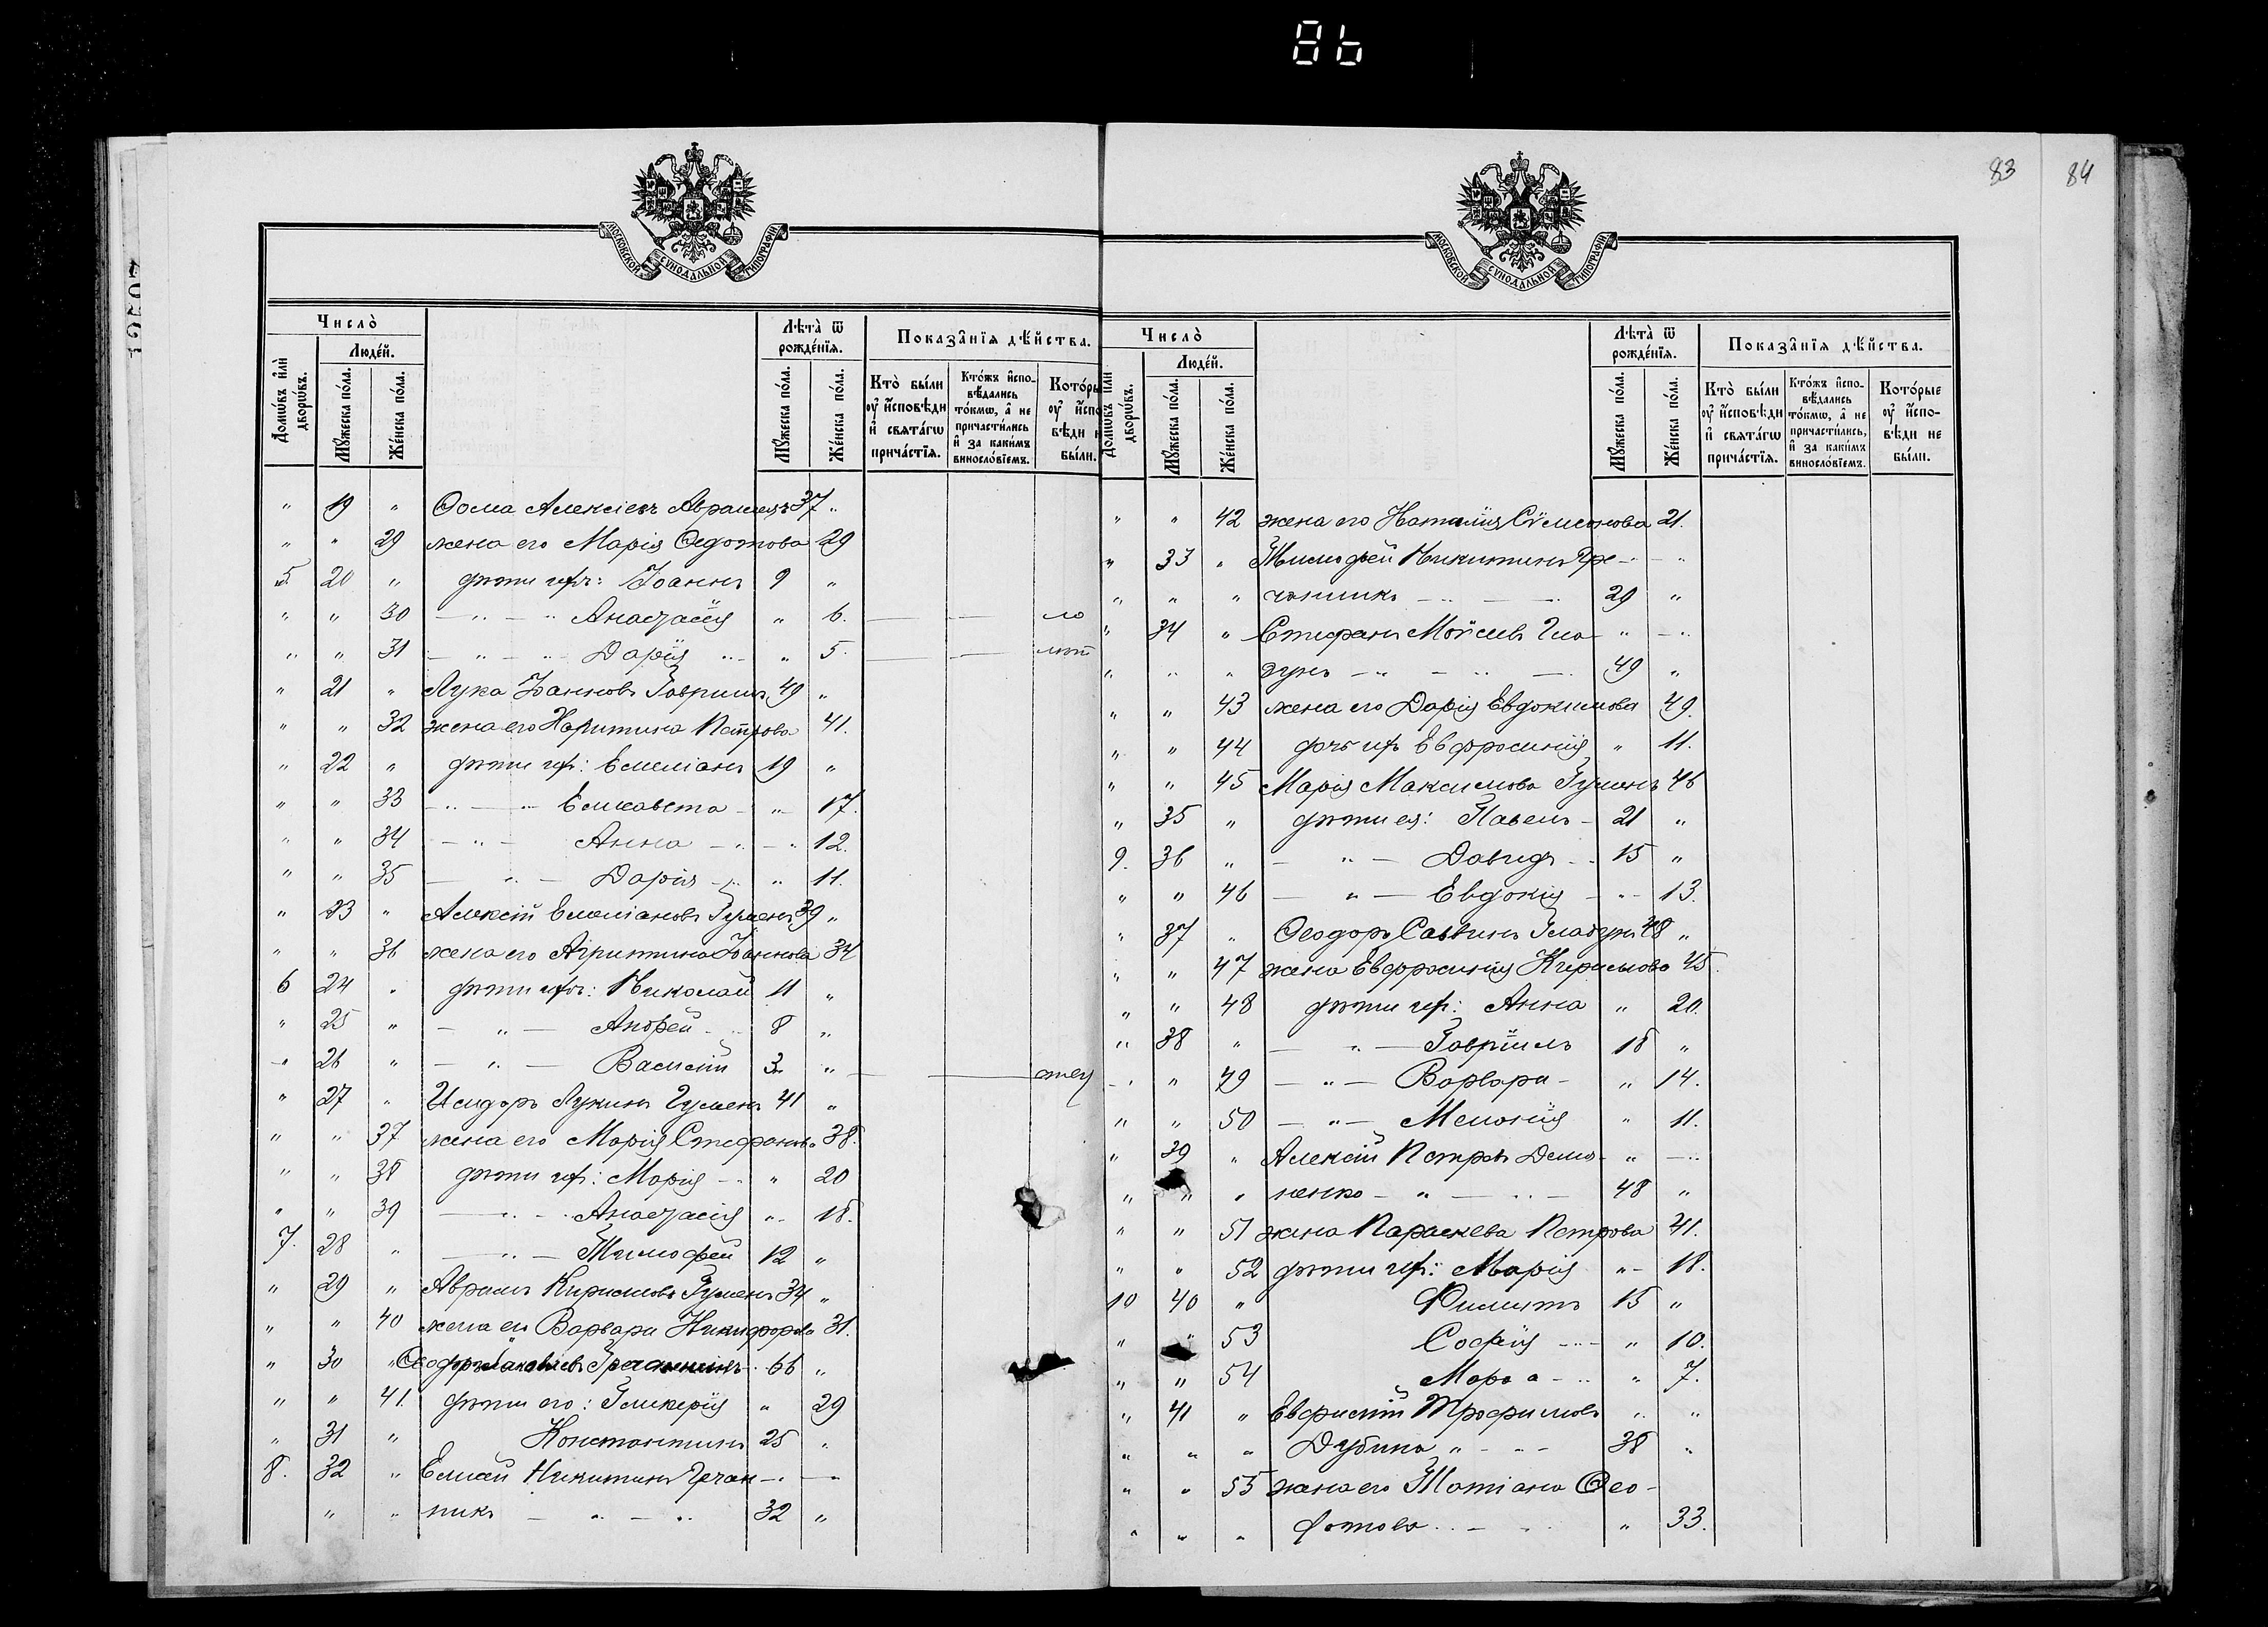 86
83 84
МОСКОВСКОЙ СѴНОДАЛЬНОЙ ТИПОГРАФІИ
Число̀
Люде́й.
Домѡ́въ и҆лѝ дворѡ́въ.
Мꙋ́жеска по́ла.
Же́нска по́ла.
Лѣта̀ ѿ рожде́нїѧ.
Мꙋ́жеска по́ла.
Же́нска по́ла.
Показа̑нїѧ дѣ́йства.
Кто̀ бы́ли ᲂу҆ и҆́сповѣди и҆ свѧта́гѡ прича́стїѧ.
Кто́жъ и҆сповѣ́дались то́кмѡ, а҆ не причасти́лись и҆ за каки́мъ виносло́вїемъ.
Кото́ры ᲂу҆ и҆́спо вѣди н бы́ли.
" 19 " Ѳома Алексіевъ Аврамецъ 37 "
" " 29 жена его Марія Ѳедотова 29
5 20 " дѣти ихъ: Іоаннъ 9 "
" " 30 — " — " Анастасія " 6. — — ло
" " 31 — " — " Дарія " — " 5. — — лѣт
" 21 " Лука Іоанновъ Гаврыш 49 "
" " 32 жена его Харитина Петрова 41.
" 22 " дѣти ихъ: Емеліанъ 19 "
" " 33 — " — " Елисавета — " — 17.
" " 34 — " — Анна — " — " 12.
" " 35 — " — Дарія — " " 11.
" 23 " Алексій Емеліановъ Гуменъ 39 "
" " 36 жена его Агрипина Іоаннова 34
6 24 " дѣти ихъ: Николай 11 "
" 25 " — " — Андрей — " 8 "
" 26 " — " — Василій 3 " — —
" 27 " Исидоръ Лукинъ Гуменъ 41 "
" " 37 жена его Марія Стефанова 38.
" " 38 дѣти ихъ: Марія — " " 20
" " 39 — " — " Анастасія " — 18.
7. 28 " — " — Тимофей 12 "
" 29 " Аврамъ Кириловъ Гуменъ 34 "
" " 40 жена его Варвара Никифорова 31.
" 30 " Ѳеодоръ 66 "
" " 41. дѣти его: Гликерія " 29
" 31 " Константинъ 25 "
8. 32 " Елисей Никитинъ Гречан — " —
" " никъ — " — " 32 "
МОСКОВСКОЙ СѴНОДАЛЬНОЙ ТИПОГРАФІИ
Число̀
Люде́й.
Домѡ́въ и҆лѝ дворѡ́въ.
Мꙋ́жеска по́ла.
Же́нска по́ла.
Лѣта̀ ѿ рожде́нїѧ.
Мꙋ́жеска по́ла.
Же́нска по́ла.
Показа̑нїѧ дѣ́йства.
Кто̀ бы́ли ᲂу҆ и҆́сповѣди и҆ свѧта́гѡ прича́стїѧ.
Кто́жъ и҆сповѣ́дались то́кмѡ, а҆ не причасти́лись, и҆ за каки́мъ виносло́вїемъ.
Кото́рые ᲂу҆ и҆́сповѣди не бы́ли.
" " 42 жена его Наталія Сѵмеонова 21.
" 33 " Тимофей Никитинъ Гре — " — "
" " " чаникъ — " — " 29 "
" 34 " Стефанъ Мойсеевъ Гла — " — "
" " " зунъ — " — " — 49 "
" " 43 жена его Дарія Евдокимова 49.
" " 44 дочь ихъ Евфросинія " 11.
" " 45 Марія Максимова Гуменъ 46
" 35 " дѣти ея: Павелъ — 21 "
9. 36 " — " — Давидъ — " 15 "
" " 46 — " — Евдокія — " — 13.
" 37 " Ѳеодоръ Саввинъ 48 "
" " 47 жена Евфросинія Кирилова 45.
" " 48 дѣти ихъ: Анна " 20.
" 38 " — " — Гавріилъ 18 "
" " 49 — " — Варвара — " 14.
" " 50 — " — Меланія " 11.
" 39 " Алексій Петровъ Дема — " — "
" " " ненко — " — " — 48 "
" " 51 жена Параскева Петрова 41.
" " 52 дѣти ихъ: Марія " — 18.
10 40 " Филиппъ 15 "
" " 53 Софія — " — " 10.
" " 54 Марѳа — " " 7.
" 41 " Евфимій Трофимовъ " "
" " " Дубина " — " — 38 "
" " 55 жена его Татіана Ѳео —
" " " " 33.